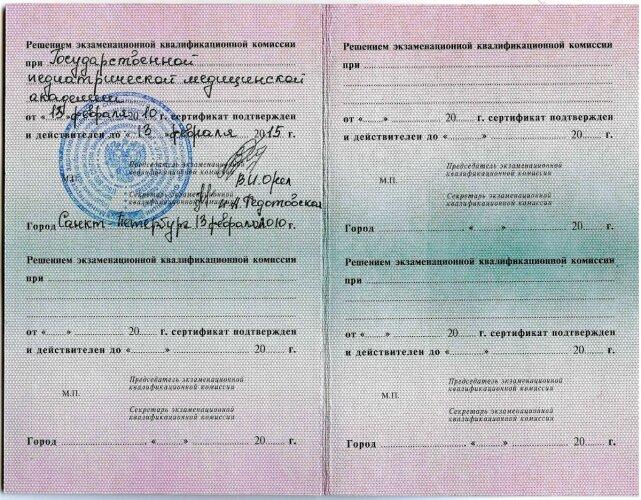 Решением экзаменационной квалификационной комиссии
при Государственной
педиатрической медицинской
академии
от «13» февраля 2010 г. сертификат подтвержден
и действителен до «13» февраля 2015 г.
Председатель экзаменационной
квалификационной комиссии
В.И. Орел
М.П.
Секретарь экзаменационной
квалификационной комиссии
Город Санкт-Петербург 13 февраля 2010 г.
Решением экзаменационной квалификационной комиссии
при
от «......» 20..... г. сертификат подтвержден
и действителен до «......» 20..... г.
Председатель экзаменационной
квалификационной комиссии
М.П.
Секретарь экзаменационной
квалификационной комиссии
Город «......» 20..... г.
Решением экзаменационной квалификационной комиссии
при
от «......» 20..... г. сертификат подтвержден
и действителен до «......» 20..... г.
Председатель экзаменационной
квалификационной комиссии
М.П.
Секретарь экзаменационной
квалификационной комиссии
Город «......» 20..... г.
Решением экзаменационной квалификационной комиссии
при
от «......» 20..... г. сертификат подтвержден
и действителен до «......» 20..... г.
Председатель экзаменационной
квалификационной комиссии
М.П.
Секретарь экзаменационной
квалификационной комиссии
Город «......» 20..... г.